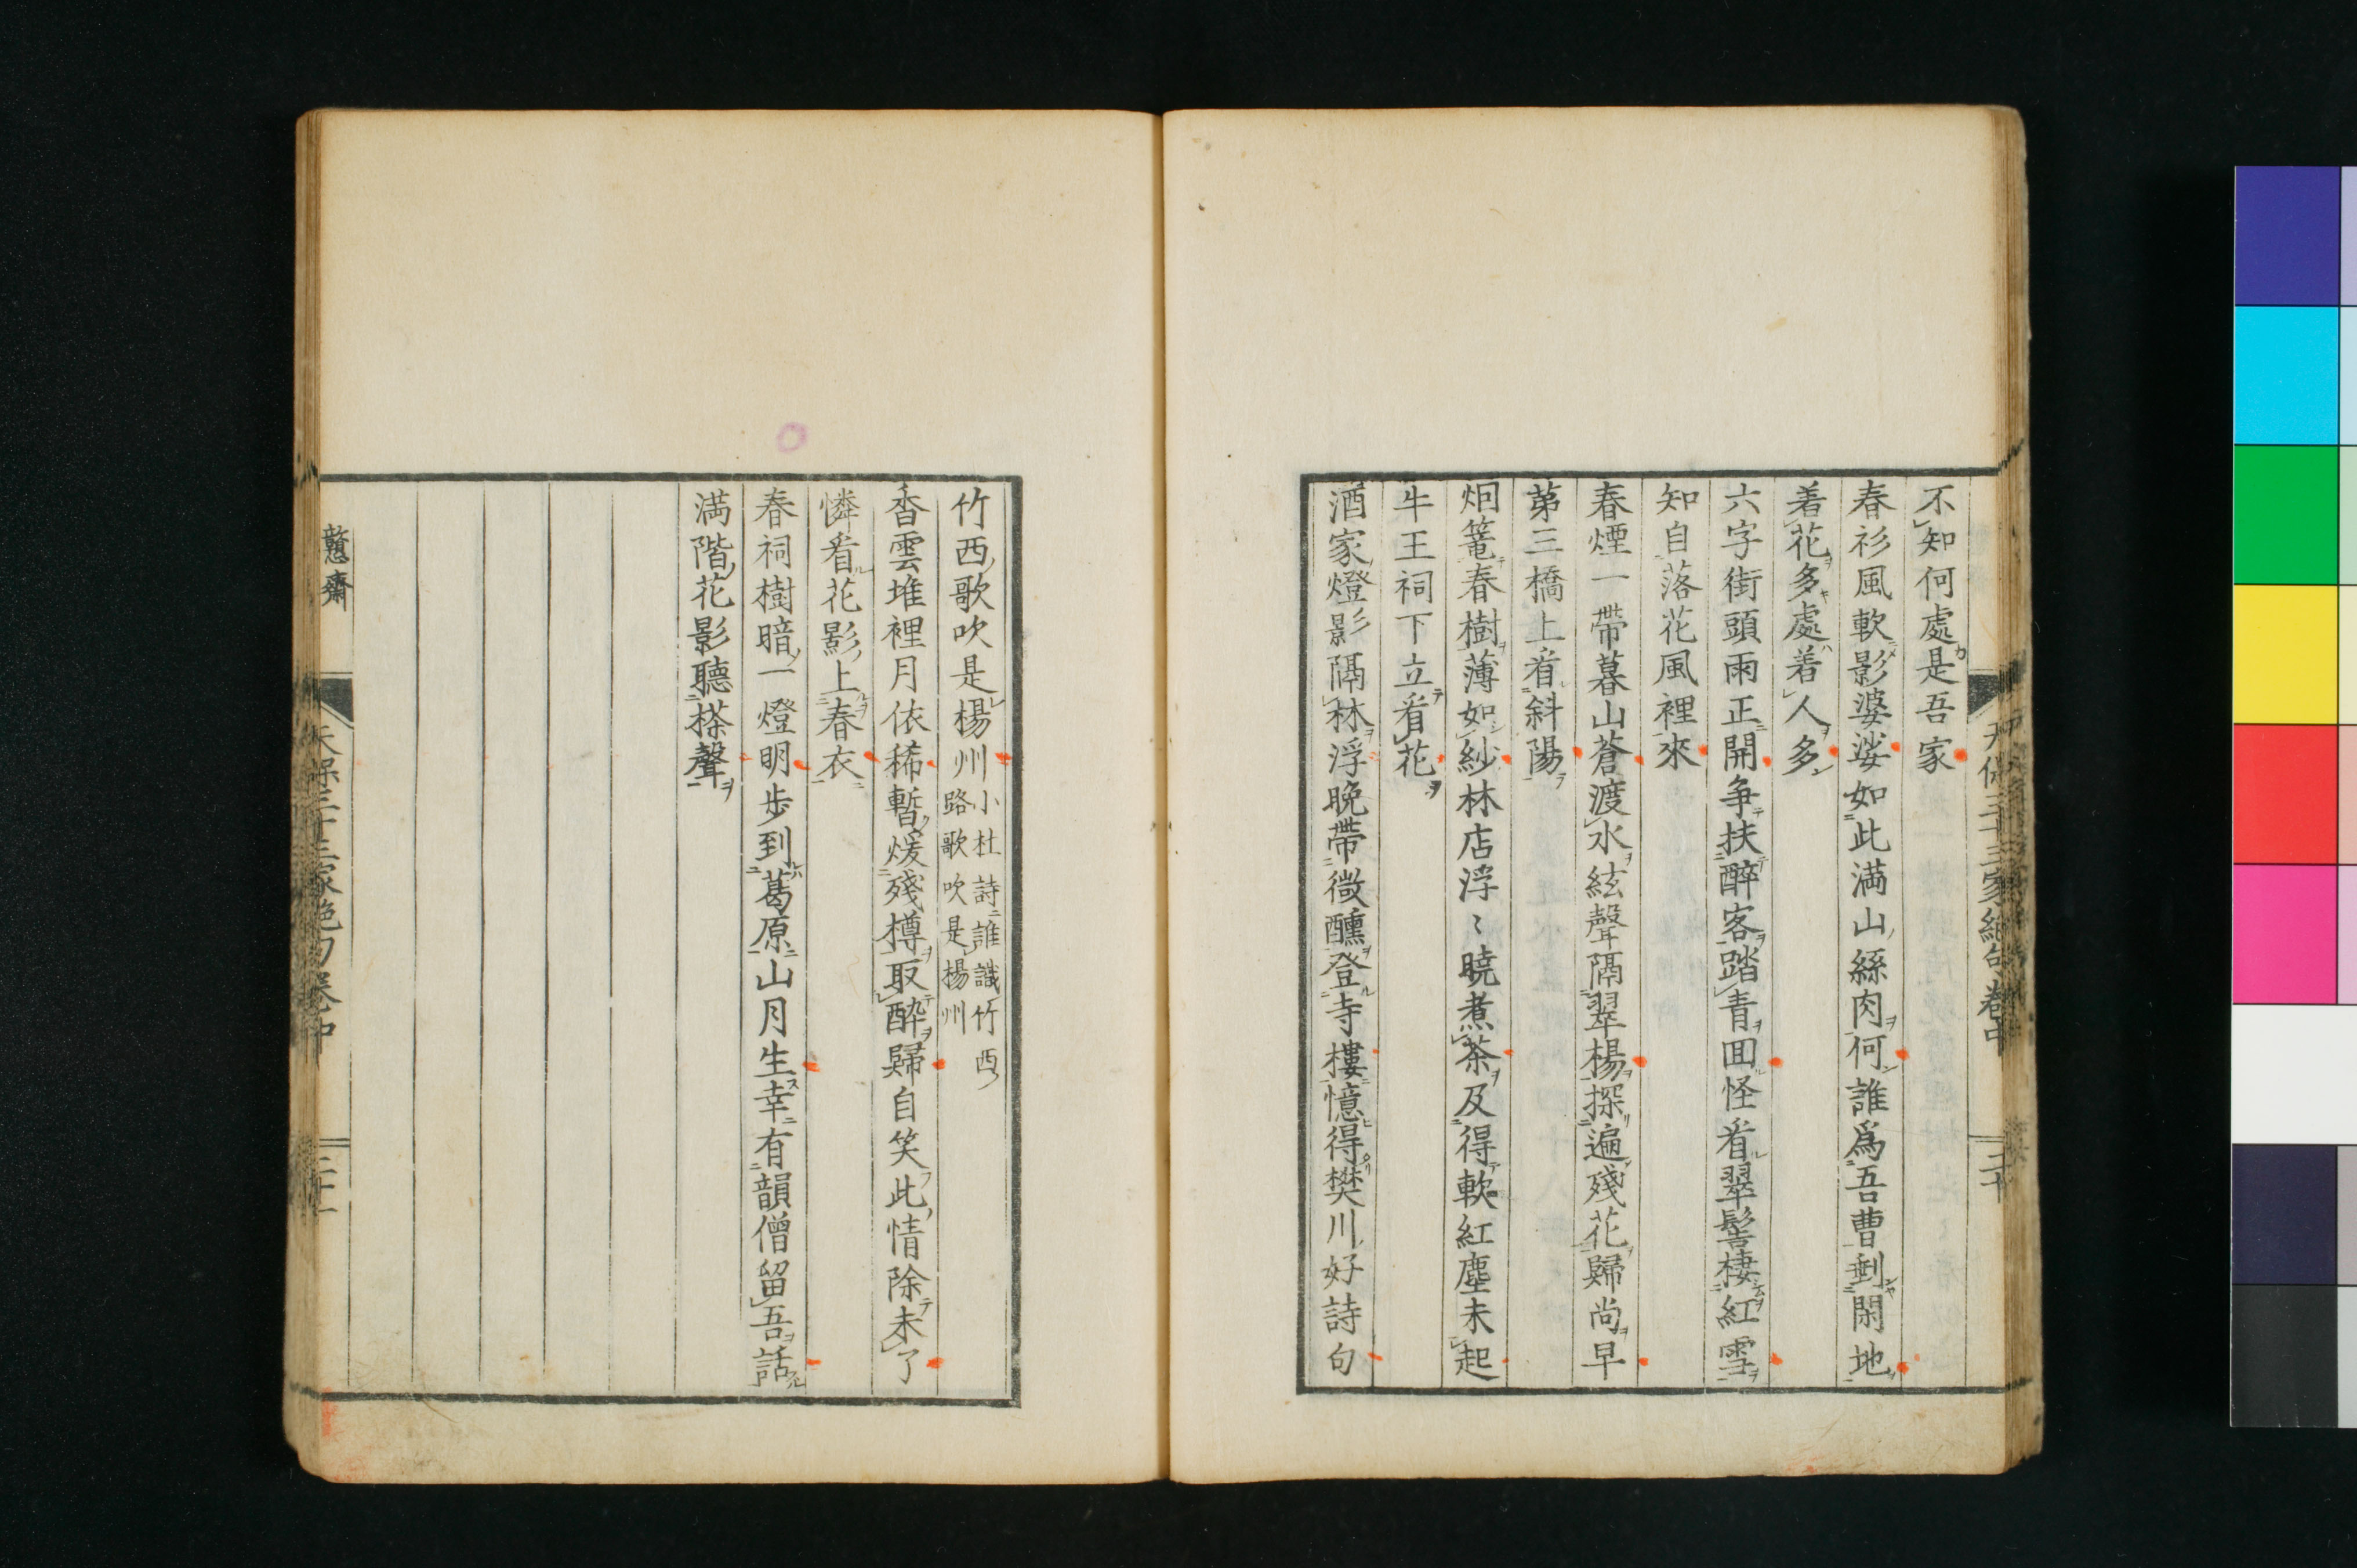 不知何處是吾家
春衫風軟影婆娑如此滿山絲肉何誰爲吾曹剩閑地
着花多處着人多
六字街頭雨正開争扶醉客踏青回怪看翠髻棲紅雪
知自落花風裡來
春煙一帶暮山蒼渡水絃聲隔翠楊探遍殘花歸尚早
第三橋上看斜陽
烱篭春樹薄如紗林店浮〻暁煮茶及得軟紅塵未起
牛王祠下立看花
酒家燈影隔林浮晩帶微醺登寺樓憶得樊川好詩句
天保三十三家絶句卷中
三十
竹西歌吹是楊州
小杜詩誰識竹西
路歌吹是楊州
香雲堆裡月依稀暫煖殘樽取酔歸自笑此情除未了
憐看花影上春衣
春祠樹暗一燈明歩到葛原山月生幸有韻僧留吾話
満階花影聽搽聲
天保三十三家絶句卷中